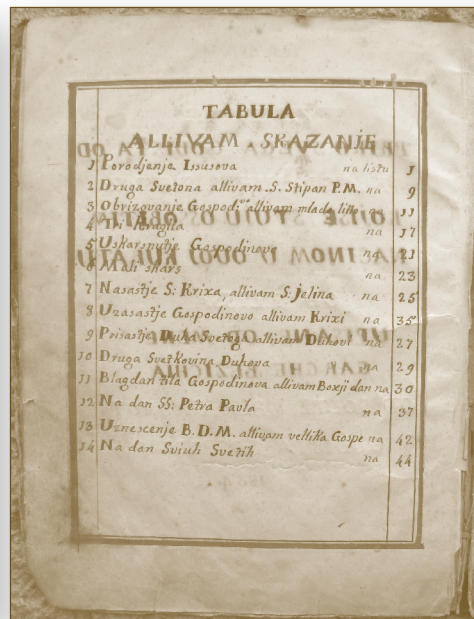 TABULA
ALLIVAM SKAZANJE
1 Porodjenje Issusova na listu 1
2 Druga Svetona allivam S. Stipan P.M. na 9
3 Obrizovanje Gospod: allivam mlado lito 11
4 Tri Kraglia na 17
5 Uskarsnutje Gospodinovo na 21
6 Mali Uskars na 23
7 Nasastje S: Krixa, allivam S: Jelina na 25
8 Uzasastje Gospodinovo allivam Krixi na 35
9 Prisastje Duha Svetog allivam Duhovi na 27
10 Druga Svetkovina Duhova na 29
11 Blagdan tila Gospodinova allivam Boxji dan na 30
12 Na dan SS: Petra Pavla na 37
13 Uznescenje B.D.M. allivam vellika Gospe na 42
14 Na dan Sviuh Svetih na 44